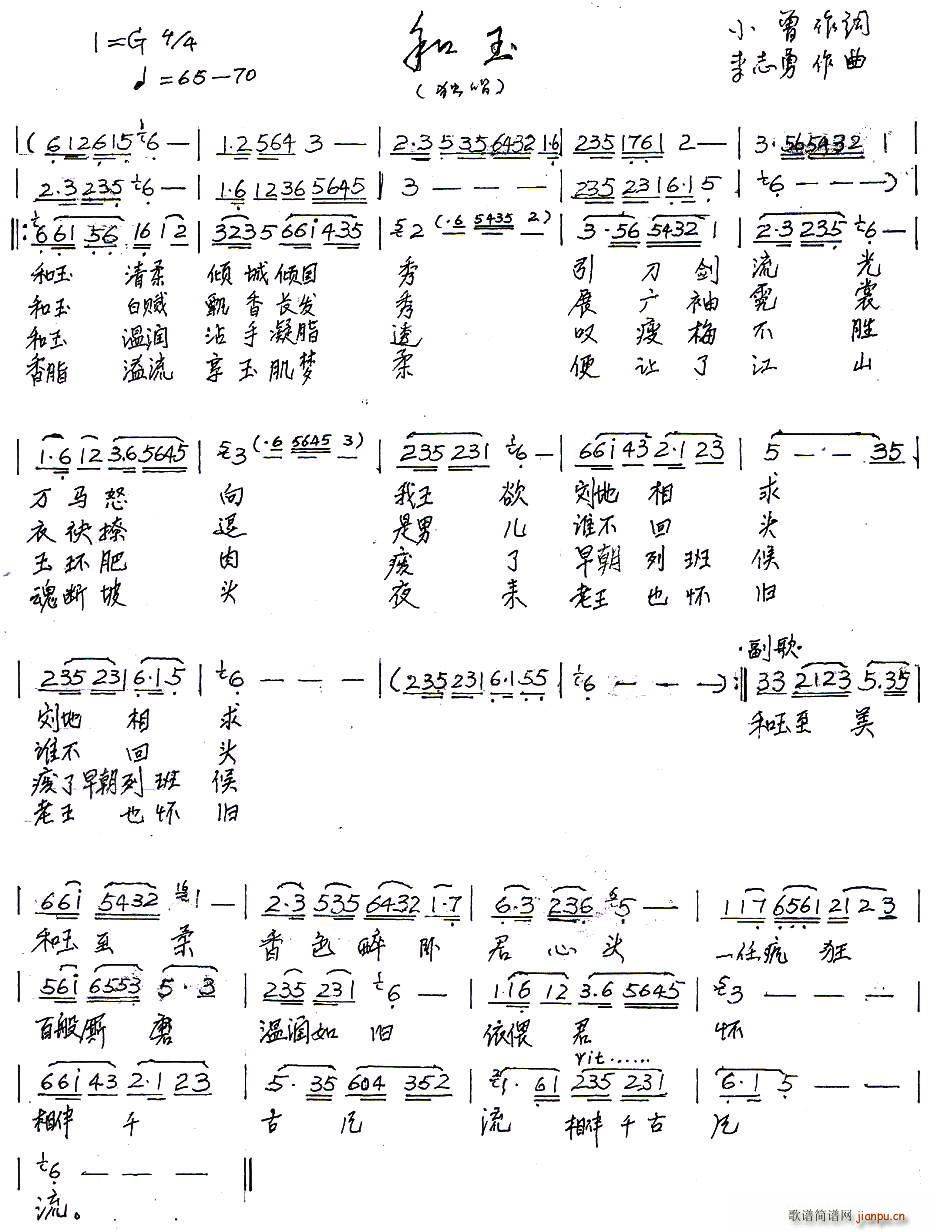 1=G 4/4
♩=65—70
和玉
(独唱)
小曾作词
李志勇作曲
(612615 6— | 1·2 564 3— | 2·3 535 6432 1·6 | 235 1761 2— | 3·56 5432 1 |
2·3 235 6— | 1·6 1236 5645 | 3 — — — | 235 231 6·1 5 | 6 — — —)
‖: 661 56 16 12 | 3235 661 435 | 2 (·6 5435 2) | 3·56 5432 1 | 2·3 235 6— |
和玉 清柔 倾城倾国 秀 引刀剑流光
和玉 白贼 飘香长发 秀 展广袖霓裳
和玉 温润 沾手凝脂 透 叹瘦梅不胜
香脂 溢流 享玉肌梦 柔 便让了江山
| 1·6 12 3·6 5645 | 3 (·6 5645 3) | 235 231 6— | 661 43 2·1 23 | 5 — — 35 |
万马怒 向 我王 欲 刻地 相 求
衣袂撩 退 是男 儿 谁不 回 头
玉环肥 肉 疲 了 早朝列班 候
魂断坡 头 夜 来 老王也怀 旧
| 235 231 6·1 5 | 6 — — — | (235 231 6·1 55 | 6 — — —) :‖ 33 2123 5·35 |
·副歌·
和玉至 美
刻地 相 求
谁不 回 头
疲了早朝列班 候
老王 也怀 旧
| 661 5432 1— | 2·3 535 6432 1·7 | 6·3 236 5— | 117 6561 212 3 |
和玉至 柔 香色醉卧 君心头 一任疯 狂
| 561 6553 5·3 | 235 231 6— | 1·16 12 3·6 5645 | 3 — — — |
百般厮 磨 温润如 旧 依偎 君 怀
rit......
| 661 43 2·1 23 | 5·35 604 352 | 1·61 235 231 | 6·1 5 — — |
相伴 千 古 风 流 相伴千古 风
| 6 — — — ‖
流。
歌谱简谱网
jianpu.cn